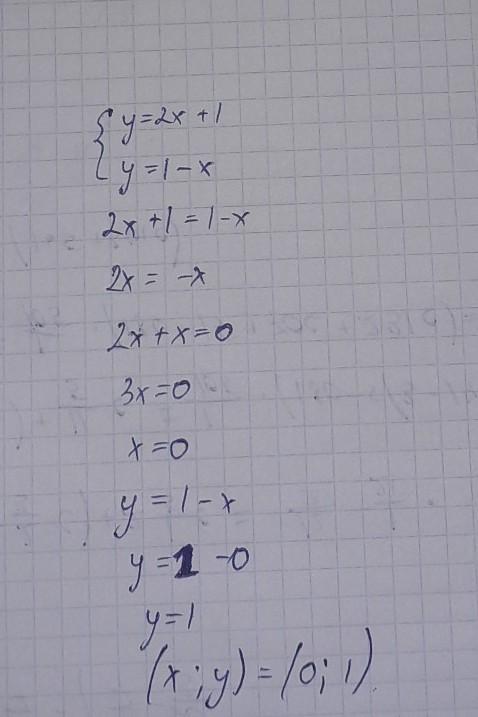 { y=2x+1
y=1-x
2x+1=1-x
2x= -x
2x+x=0
3x=0
x=0
y=1-x
y=1-0
y=1
(x;y)=(0;1)